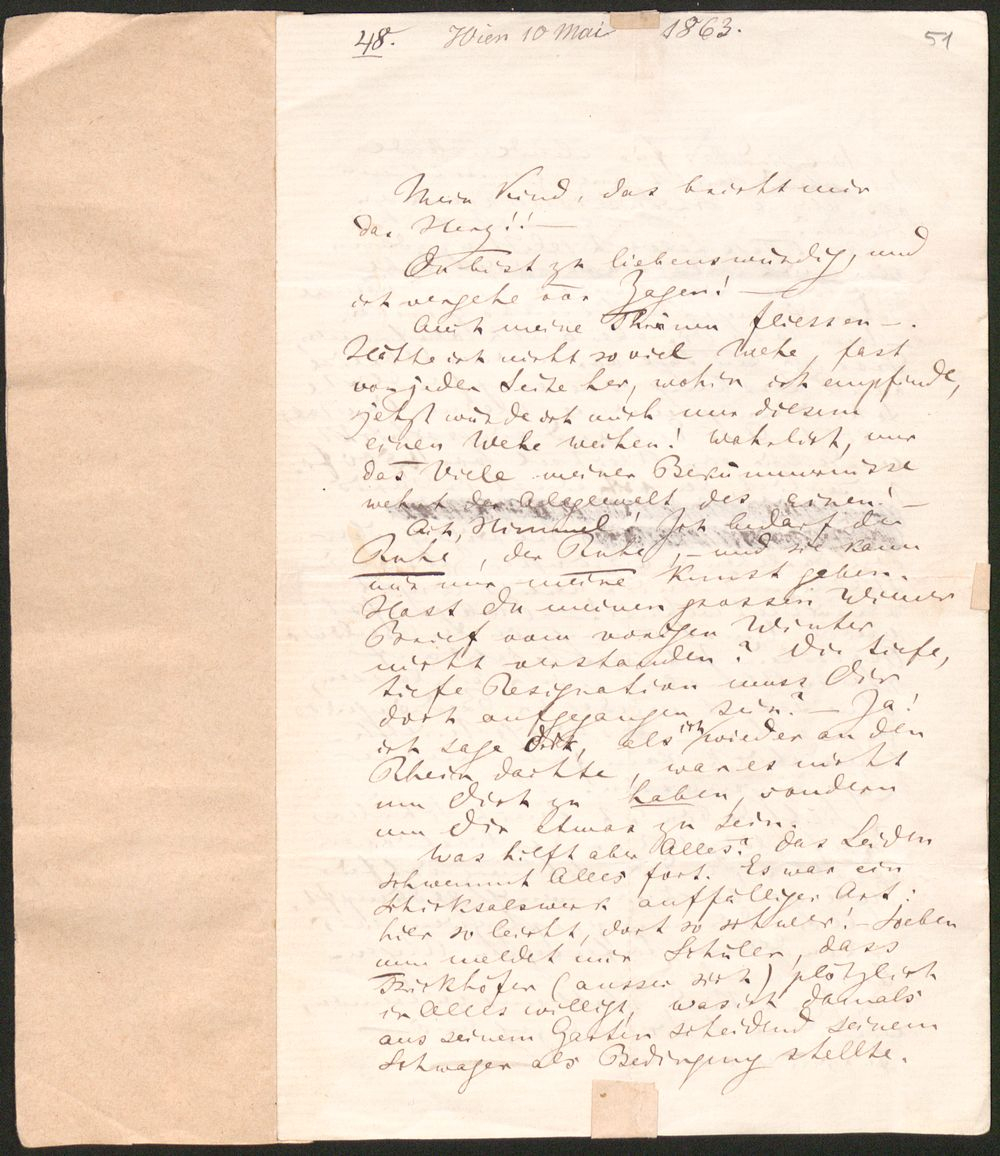 48. Wien 10 Mai 1863. 51
Mein Kind, das bricht mir
das Herz!! —
Du bist zu liebenswürdig, und
ich vergehe vor Zagen! —
Auch meine Thränen fliessen —.
Hätte ich nicht so viel Wehe, fast
von jeder Seite her, wohin ich empfinde,
jetzt würde ich mich nur diesem
einen Wehe weihen! Wahrlich, nur
das Viele meiner Bekümmernisse
wehrt der Allgewalt des einen! —
Ach, Himmel! Ich bedarf der
Ruhe, der Ruhe, — und sie kann
mir nur meine Kunst geben.
Hast Du meinen grossen Wiener
Brief vom vorigen Winter
nicht verstanden? Die tiefe,
tiefe Resignation muss Dir
dort aufgegangen sein? — Ja!
ich sage Dir, als ich wieder an den
Rhein dachte, war es nicht
um Dich zu haben, sondern
um Dir etwas zu sein.
Was hilft aber Alles? Das Leiden
schwemmt Alles fort. Es war ein
Schicksalswerk auffälliger Art:
hier so leicht, dort so schwer! — Soeben
nun meldet mir Schüler, dass
Frickhöfer (ausser sich) plötzlich
in Alles willigt, was ich damals
aus seinem Garten scheidend seinem
Schwager als Bedingung stellte.